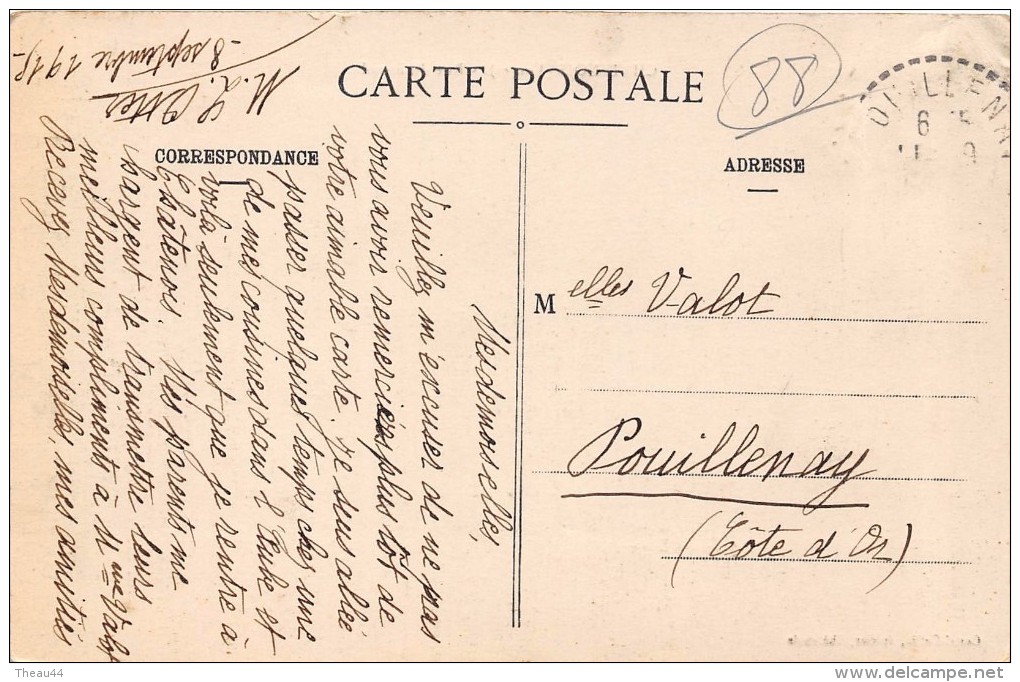 CARTE POSTALE
88
CORRESPONDANCE
ADRESSE
OUILLENA
6
9
8 septembre 191
M. L.
Mesdemoiselles,
Veuillez m'excuser de ne pas
vous avoir remerciées plus tôt de
votre aimable carte. Je suis allée
passer quelques temps chez une
de mes cousines dans l'Aube et
voilà seulement que je rentre à
Châtenois. Mes parents me
chargent de transmettre leurs
meilleurs compliments à Mme Valot
Recevez, Mesdemoiselles, mes amitiés
Melles Valot
Pouillenay
(Côte d'Or)
Theau44
delcampe.net